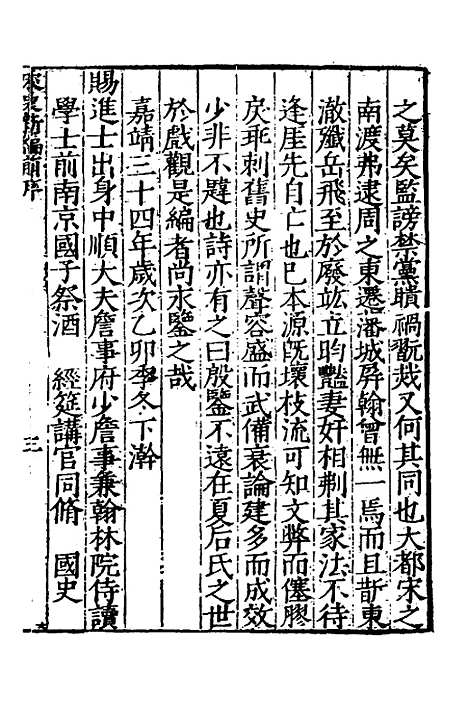 之莫矣監謗禁黨賾禍翫烖又何其同也大都宋之
南渡弗逮周之東遷潘城屛翰曾無一焉而且斮東
澈殲岳飛至於廢竑立昀豔妻奸相剘其家法不待
逢厓先自亡也已本源旣壞枝流可知文弊而僿膠
戾乖刺舊史所謂聲容盛而武備衰論建多而成效
少非不韙也詩亦有之曰殷鑒不遠在夏后氏之世
於戲觀是編者尚永鑒之哉
嘉靖三十四年歲次乙卯季冬下澣
賜進士出身中順大夫詹事府少詹事兼翰林院侍讀
學士前南京國子祭酒 經筵講官同脩 國史
宋史新編前序
三